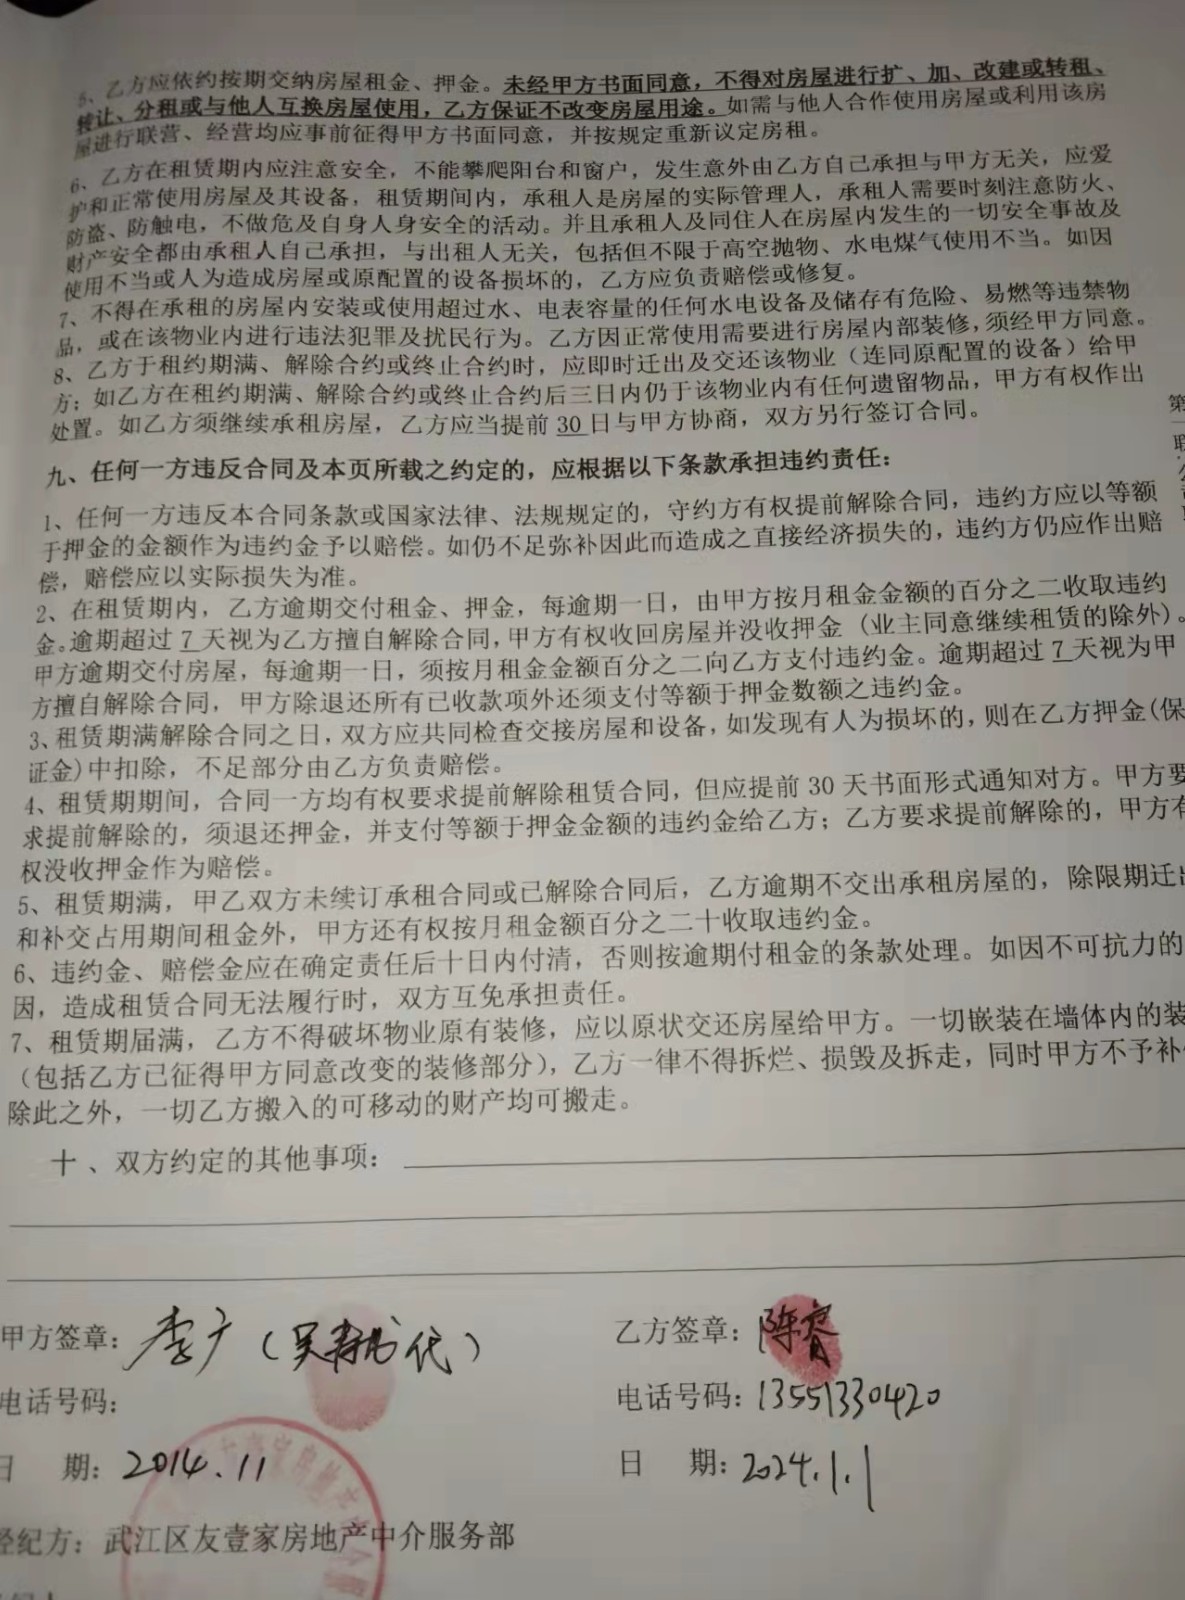 5、乙方应依约按期交纳房屋租金、押金。未经甲方书面同意，不得对房屋进行扩、加、改建或转租、
转让、分租或与他人互换房屋使用，乙方保证不改变房屋用途。如需与他人合作使用房屋或利用该房
屋进行联营、经营均应事前征得甲方书面同意，并按规定重新议定房租。
6、乙方在租赁期内应注意安全，不能攀爬阳台和窗户，发生意外由乙方自己承担与甲方无关，应爱
护和正常使用房屋及其设备，租赁期间内，承租人是房屋的实际管理人，承租人需要时刻注意防火、
防盗、防触电，不做危及自身人身安全的活动。并且承租人及同住人在房屋内发生的一切安全事故及
财产安全都由承租人自己承担，与出租人无关，包括但不限于高空抛物、水电煤气使用不当。如因
使用不当或人为造成房屋或原配置的设备损坏的，乙方应负责赔偿或修复。
7、不得在承租的房屋内安装或使用超过水、电表容量的任何水电设备及储存有危险、易燃等违禁物
品，或在该物业内进行违法犯罪及扰民行为。乙方因正常使用需要进行房屋内部装修，须经甲方同意。
8、乙方于租约期满、解除合约或终止合约时，应即时迁出及交还该物业（连同原配置的设备）给甲
方；如乙方在租约期满、解除合约或终止合约后三日内仍于该物业内有任何遗留物品，甲方有权作出
处置。如乙方须继续承租房屋，乙方应当提前 30 日与甲方协商，双方另行签订合同。
九、任何一方违反合同及本页所载之约定的，应根据以下条款承担违约责任：
1、任何一方违反本合同条款或国家法律、法规规定的，守约方有权提前解除合同，违约方应以等额
于押金的金额作为违约金予以赔偿。如仍不足弥补因此而造成之直接经济损失的，违约方仍应作出赔
偿，赔偿应以实际损失为准。
2、在租赁期内，乙方逾期交付租金、押金，每逾期一日，由甲方按月租金金额的百分之二收取违约
金。逾期超过 7 天视为乙方擅自解除合同，甲方有权收回房屋并没收押金（业主同意继续租赁的除外）。
甲方逾期交付房屋，每逾期一日，须按月租金金额百分之二向乙方支付违约金。逾期超过 7 天视为甲
方擅自解除合同，甲方除退还所有已收款项外还须支付等额于押金数额之违约金。
3、租赁期满解除合同之日，双方应共同检查交接房屋和设备，如发现有人为损坏的，则在乙方押金(保
证金)中扣除，不足部分由乙方负责赔偿。
4、租赁期期间，合同一方均有权要求提前解除租赁合同，但应提前 30 天书面形式通知对方。甲方要
求提前解除的，须退还押金，并支付等额于押金金额的违约金给乙方；乙方要求提前解除的，甲方有
权没收押金作为赔偿。
5、租赁期满，甲乙双方未续订承租合同或已解除合同后，乙方逾期不交出承租房屋的，除限期迁出
和补交占用期间租金外，甲方还有权按月租金额百分之二十收取违约金。
6、违约金、赔偿金应在确定责任后十日内付清，否则按逾期付租金的条款处理。如因不可抗力的
因，造成租赁合同无法履行时，双方互免承担责任。
7、租赁期届满，乙方不得破坏物业原有装修，应以原状交还房屋给甲方。一切嵌装在墙体内的装
（包括乙方已征得甲方同意改变的装修部分），乙方一律不得拆烂、损毁及拆走，同时甲方不予补
除此之外，一切乙方搬入的可移动的财产均可搬走。
十、双方约定的其他事项：
甲方签章：李广（吴 代） 乙方签章：陈睿
电话号码： 电话号码：13551330420
日 期：2014.11 日 期：2024.1.1
经纪方：武江区友壹家房地产中介服务部
第
一
联